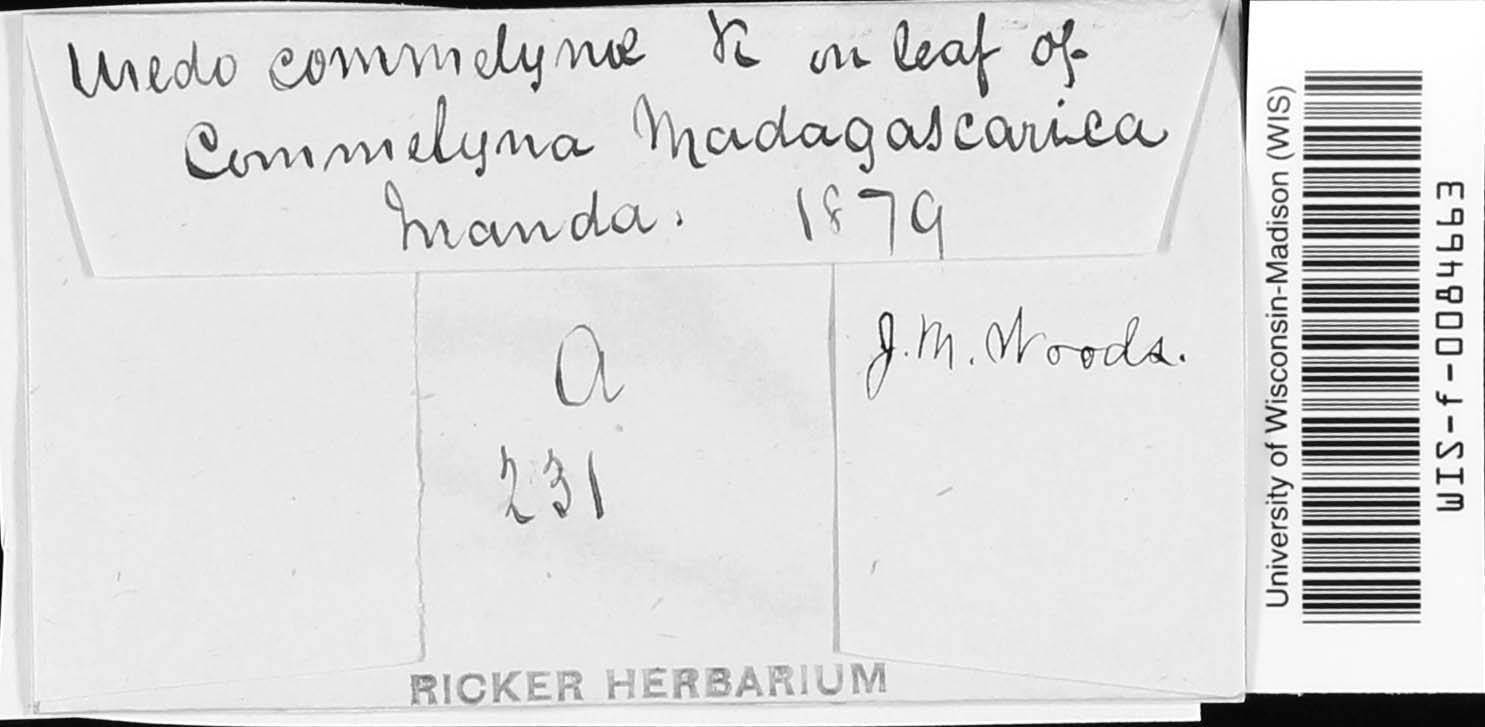 Uredo commelynæ K on leaf of
Commelyna Madagascarica
Inanda. 1879
a
231
J. M. Woods.
RICKER HERBARIUM
University of Wisconsin-Madison (WIS)
WIS-f-0084663